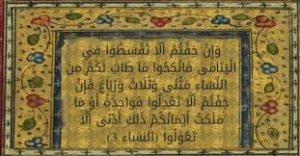 وَإِنْ خِفْتُمْ أَلَّا تُقْسِطُوا فِي
الْيَتَامَى فَانْكِحُوا مَا طَابَ لَكُمْ مِنَ
النِّسَاءِ مَثْنَى وَثُلَاثَ وَرُبَاعَ فَإِنْ
خِفْتُمْ أَلَّا تَعْدِلُوا فَوَاحِدَةً أَوْ مَا
مَلَكَتْ أَيْمَانُكُمْ ذَلِكَ أَدْنَى أَلَّا
تَعُولُوا (النساء 3)